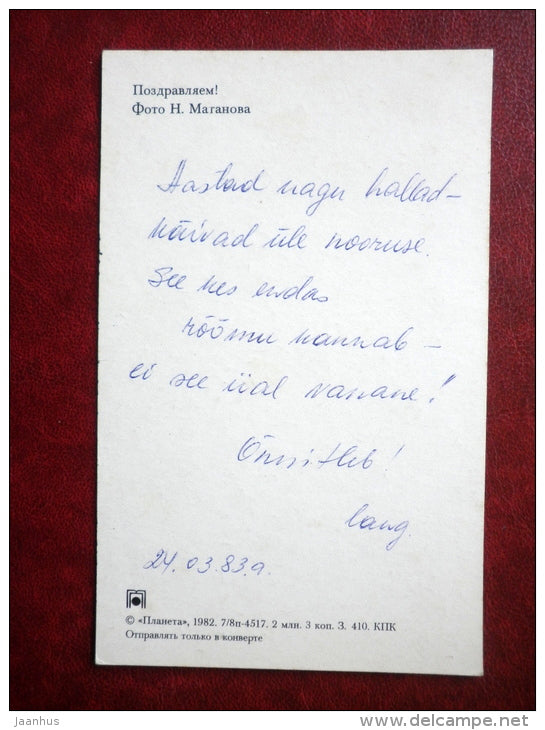 Поздравляем!
Фото Н. Маганова
Aastad nagu hallad-
käivad üle nooruse.
See kes endas
rõõmu kannab –
ei see iial vanane!"
Õnnitleb!
Lang.
24.03.83.a.
© «Планета», 1982. 7/8п-4517. 2 млн. 3 коп. З. 410. КПК
Отправлять только в конверте
© jaanhus
www.delcampe.net